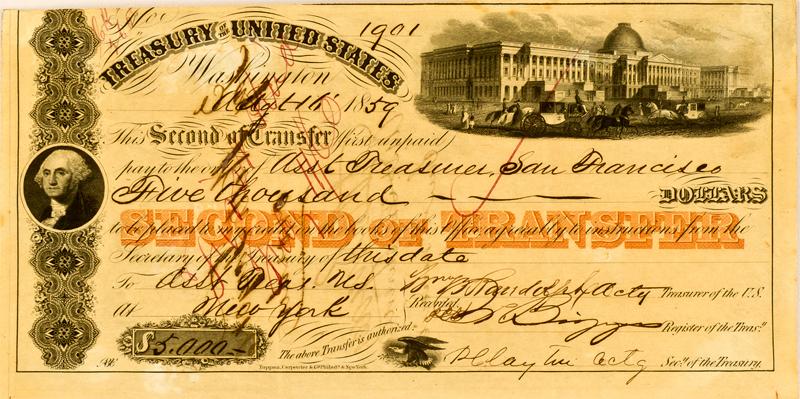 No. 1901
TREASURY OF THE UNITED STATES
Washington
1859
This Second of Transfer (first unpaid)
pay to the order of Asst Treasurer, San Francisco
Five thousand DOLLARS
SECOND OF TRANSFER
to be placed to my credit on the books of this Office, agreeably to instructions from the
Secretary of the Treasury of this date
To Asst Treas. U.S. Acty Treasurer of the U.S.
At New York Recorded Register of the Treasy
$5,000 The above Transfer is authorized: Actg Secy of the Treasury.
Toppan, Carpenter & Co. Philada & New York.